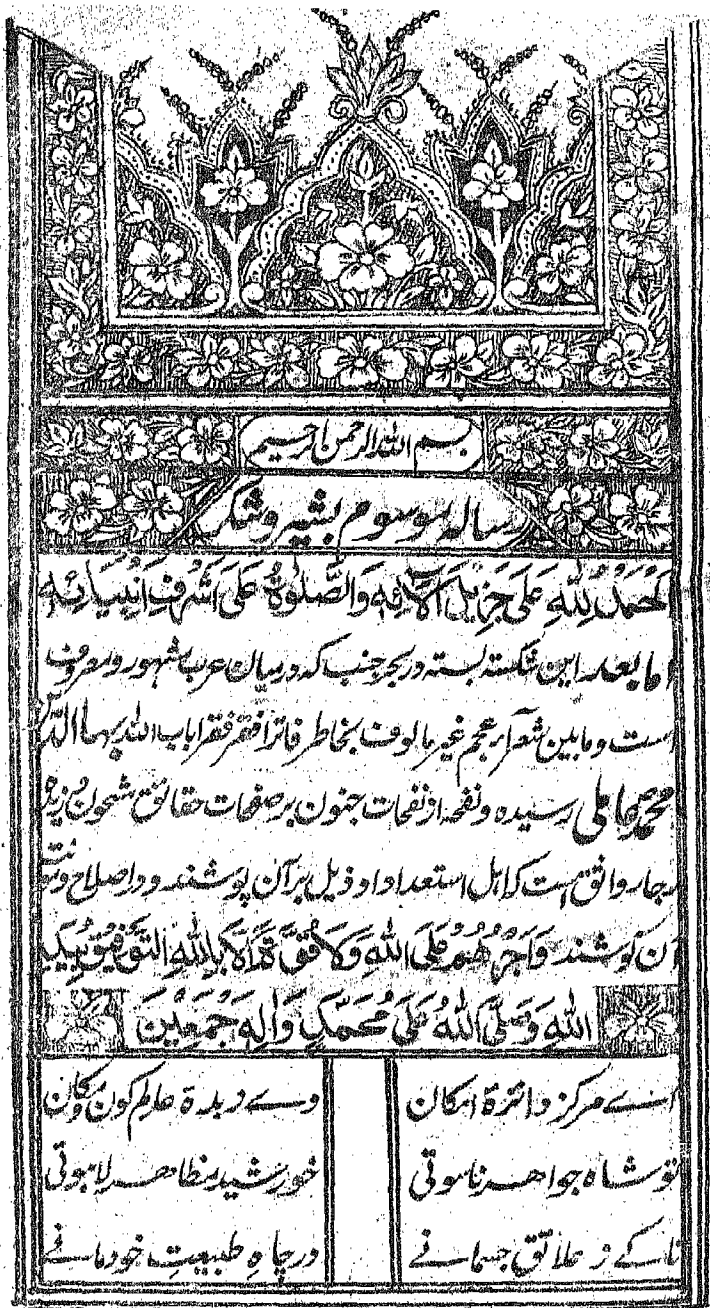 بسم الله الرحمن الرحيم
رساله موسوم بشیر و شکر
الْحَمْدُ لِلّٰهِ عَلَى جَزِيْلِ اٰلَائِهِ وَالصَّلٰوةُ عَلَى اَشْرَفِ اَنْبِيَائِهِ
اما بعد این شکسته بسته در بحر جنب که در میان عرب مشهور و معروف
است و ما بین شعرآء عجم غیر مالوف بخاطر فاتر افقر فقرا باب الله بهاء الدین
محمد عاملی رسیده و نفحه از نفحات جنون بر صفحات حقائق مشحون
رجا واثق است که اهل استعداد ذیل بر آن پوشند و در اصلاح
آن کوشند وَاَجْرُهُمْ عَلَى اللهِ وَلَا قُوَّةَ اِلَّا بِاللهِ التَّوْفِيْقُ بِيَدِ
اللهِ وَصَلَّى اللهُ عَلَى مُحَمَّدٍ وَاٰلِهِ جْمَعِيْنَ
اے مرکز دائرۀ امکان وے زبدۀ عالم کون و مکان
تو شاه جواهر ناسوتی خورشید مظاهر لاهوتی
تا کے ز علائق جسمانے در چاه طبیعت خود مانے